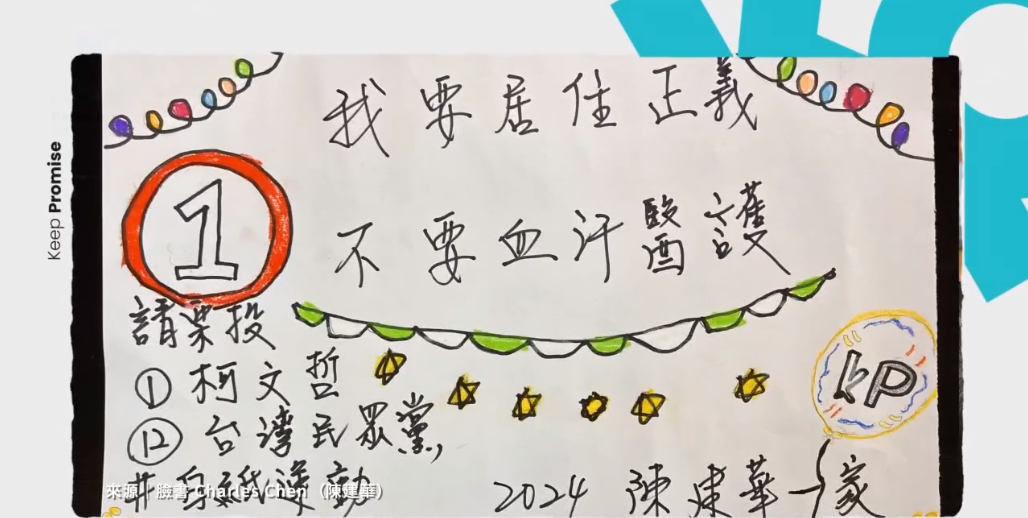 Keep Promise
我要居住正義
1
不要血汗醫護
請票投
① 柯文哲
⑫ 台灣民眾黨,
#自
來源｜臉書 Charles Chen（陳建華）
2024 陳建華一家
KP